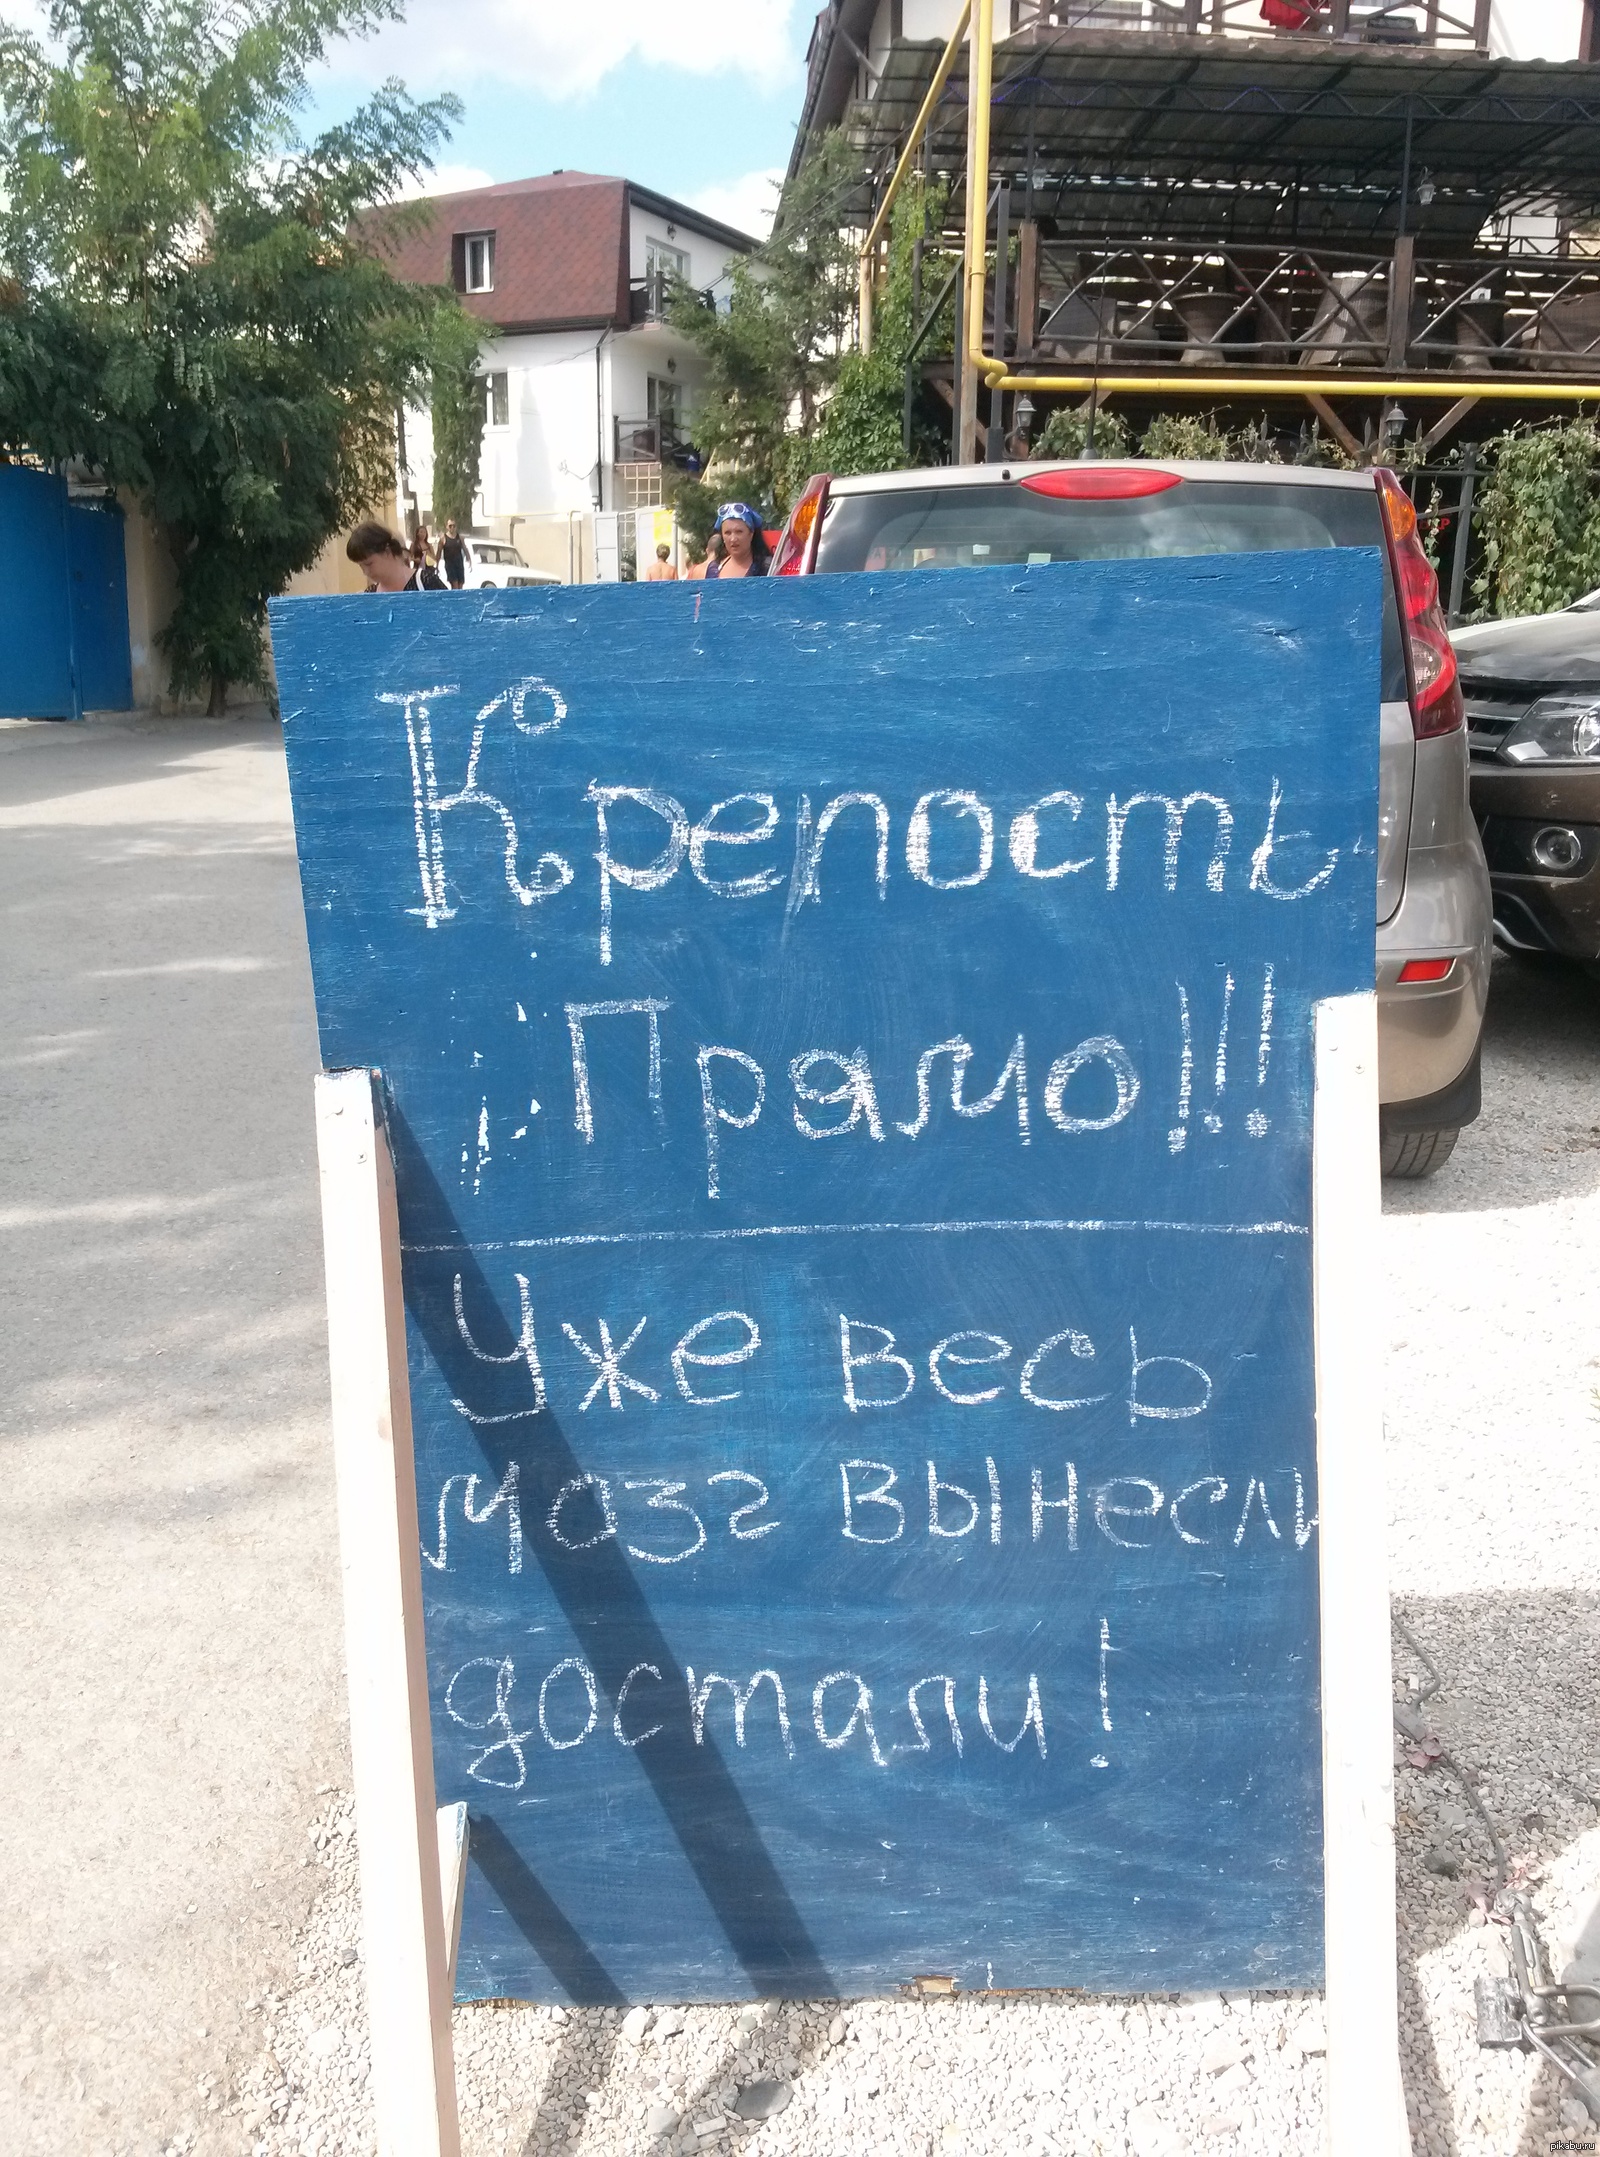 Крепость
Прямо!!!
Уже весь
мозг вынесли
достали!
pikabu.ru